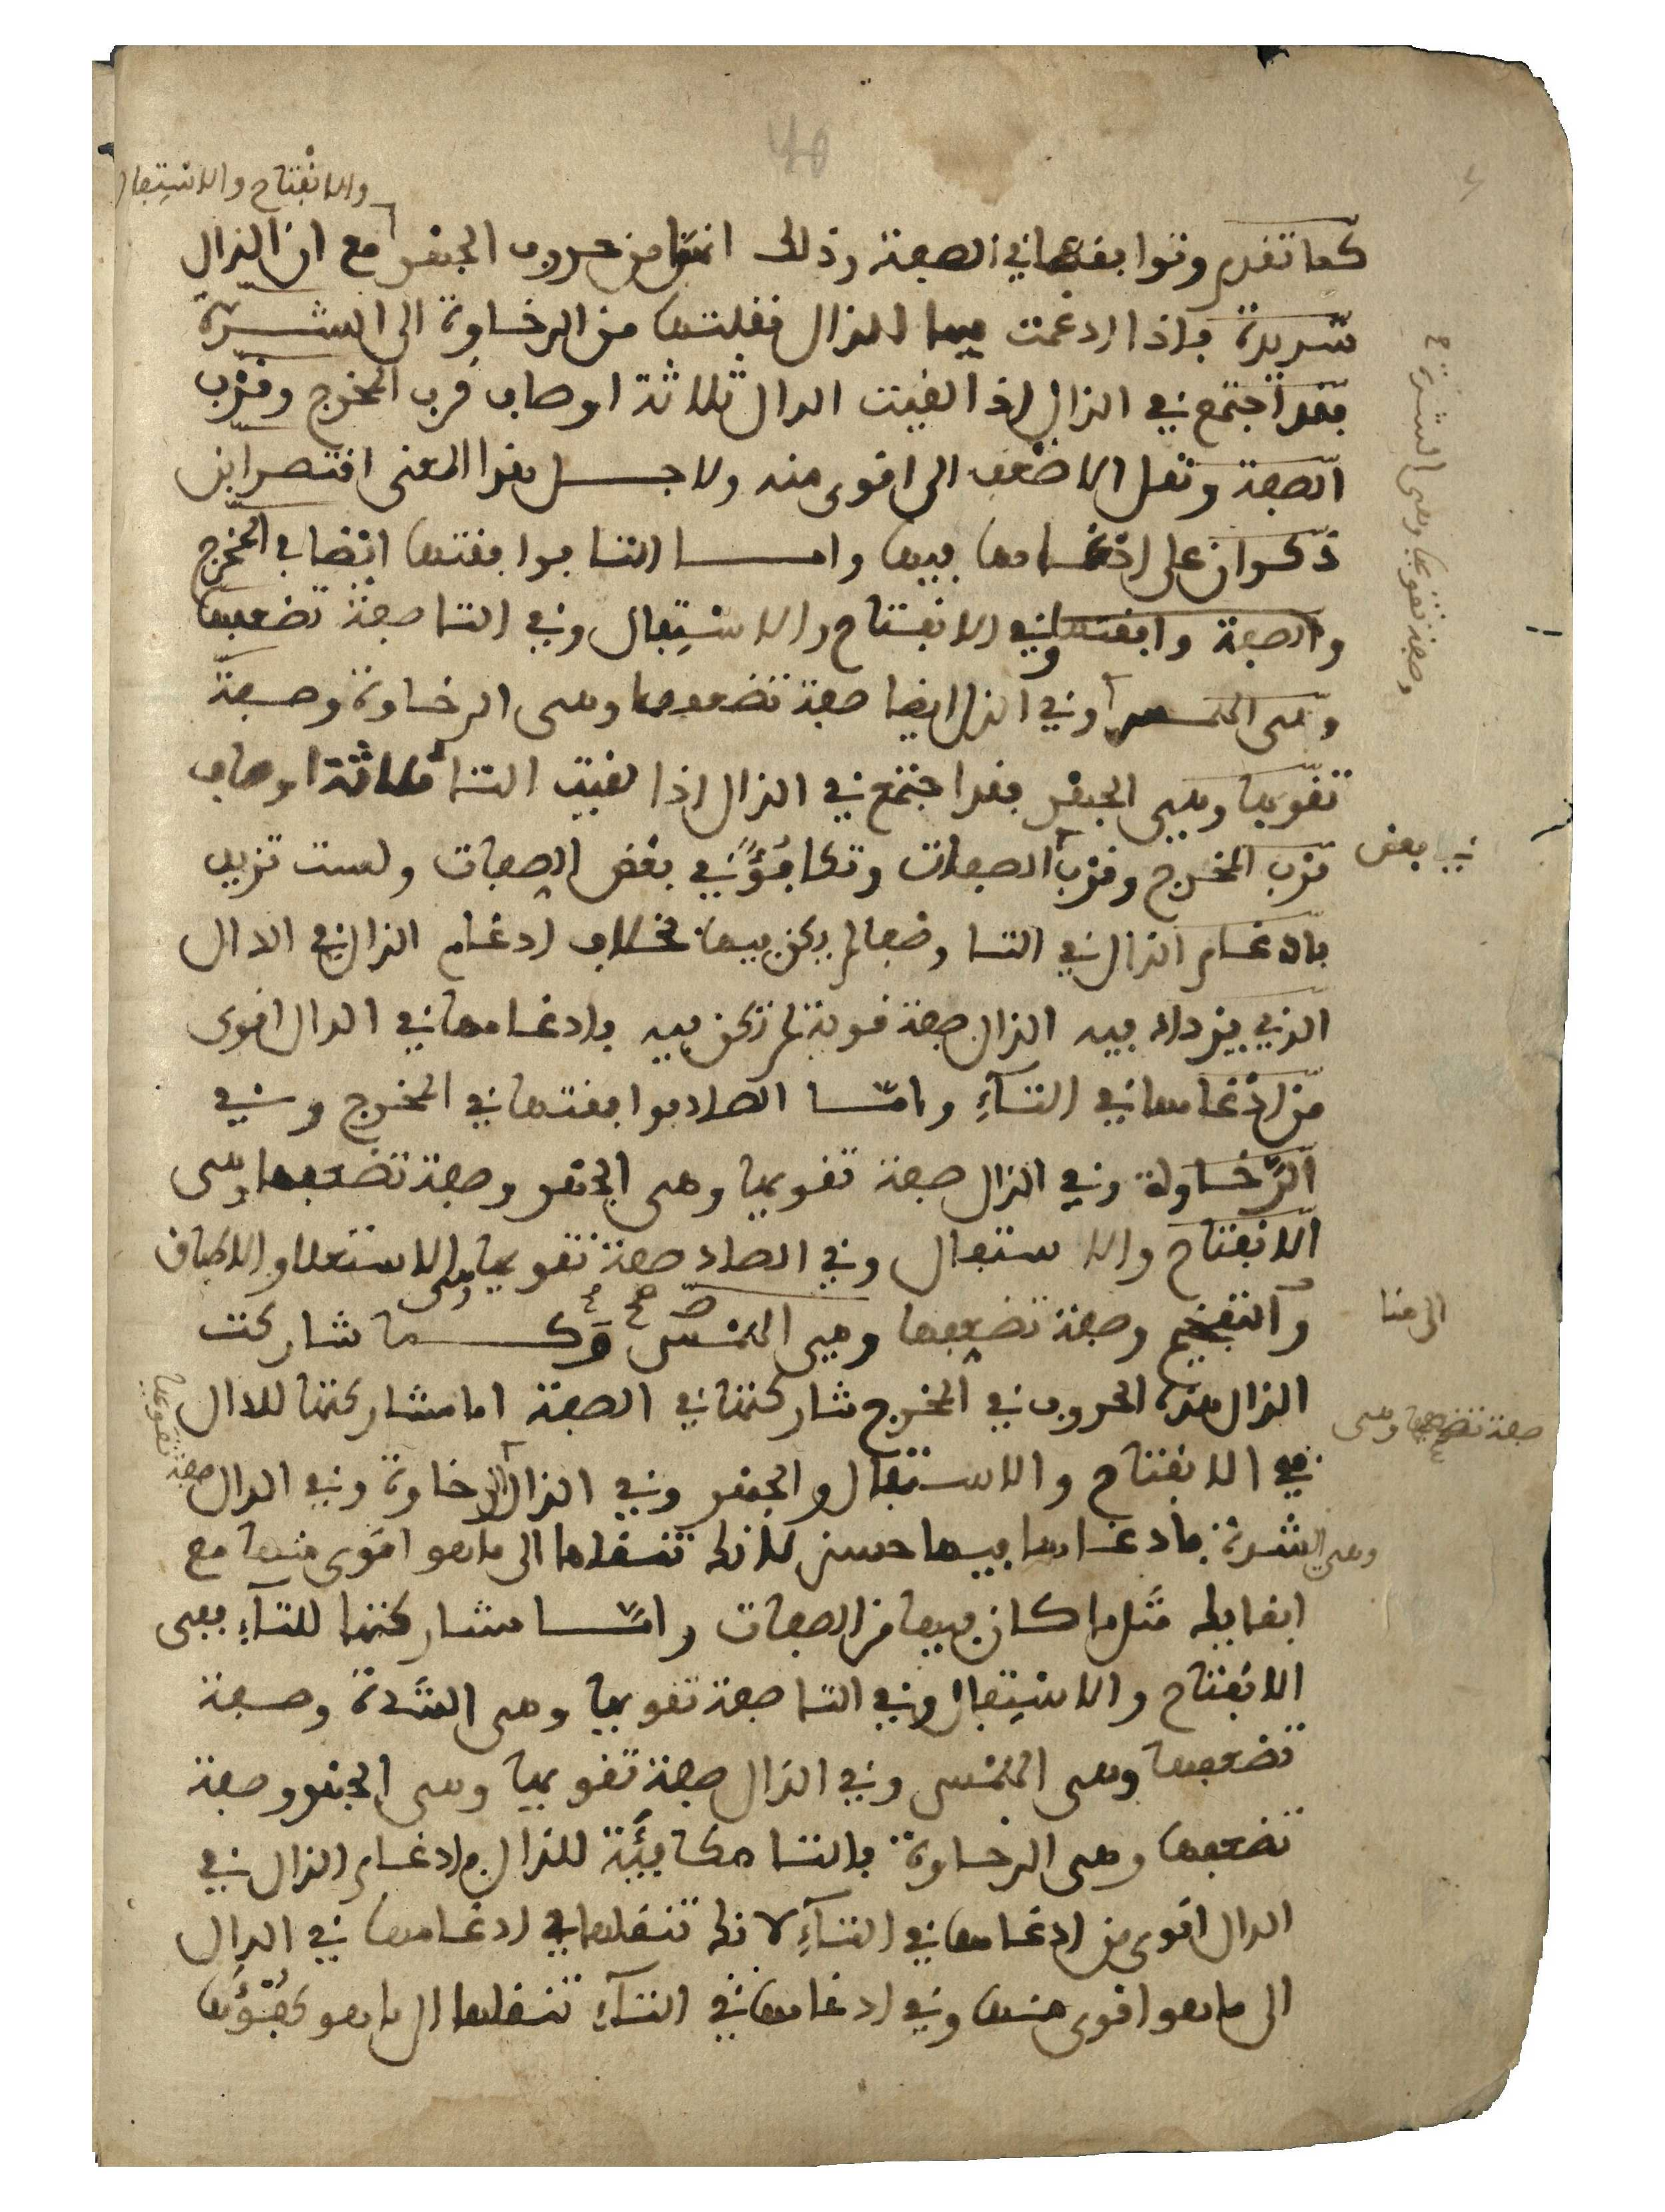 40
والانفتاح والاستفال
كما تقدم وتوافقها في الصفة وذلك انهما من حروف الجهر مع ان الدال
شديدة فاذا ادغمت فيها الذال نقلتها من الرخاوة الى الشدة
فقد اجتمع في الذال اذا لقيت الدال ثلاثة اوصاف قرب المخرج وقرب
الصفة ونقل الاضعف الى اقوى منه ولاجل هذا المعنى اقتصر ابن
ذكوان على ادغامها فيها واما التا فوافقتها ايضا في المخرج
والصفة وافقتها في الانفتاح والاستفال وفي التا صفة تضعفها
وهي الهمس وفي الذال ايضا صفة تضعفها وهي الرخاوة وصفة
وصفة تقويها وهي الشدة
تقويها وهي الجهر فقد اجتمع في الذال اذا لقيت التا ثلاثة اوصاف
قرب المخرج وقرب الصفات وتكافؤ في بعض الصفات وليست تزيد
في بعض
بادغام الذال في التا وصفا لم يكن فيها بخلاف ادغام الذال في الدال
الذي يزداد فيه الذال صفة قوية لم تكن فيه فادغامها في الدال اقوى
من ادغامها في التآء وامّا الصاد فوافقتها في المخرج وفي
الرّخاوة وفي الذال صفة تقويها وهي الجهر وصفة تضعفها وهي
الانفتاح والاستفال وفي الصاد صفة تقويها وهي الاستعلا والاطباق
والتفخيم وصفة تضعفها وهي الهمس وكما شاركت
الى هنا
الذال هذه الحروف في المخرج شاركتها في الصفة اما مشاركتها للدال
ففي الانفتاح والاستفال والجهر وفي الذال الرخاوة وفي الدال صفة تقويها
صفة تضعفها وهي
وهي الشدة فادغامها فيها حسن لانك تنقلها الى ما هو اقوى منها مع
ابقايك مثل ما كان فيها من الصفات وامّا مشاركتها للتآء ففي
الانفتاح والاستفال وفي التا صفة تقويها وهي الشدة وصفة
تضعفها وهي الهمس وفي الذال صفة تقويها وهي الجهر وصفة
تضعفها وهي الرخاوة فالتا مكافئة للذال فادغام الذال في
الدال اقوى من ادغامها في التآء لانك تنقلها في ادغامها في الدال
الى ما هو اقوى منها وفي ادغامها في التآء تنقلها الى ما هو كفؤها